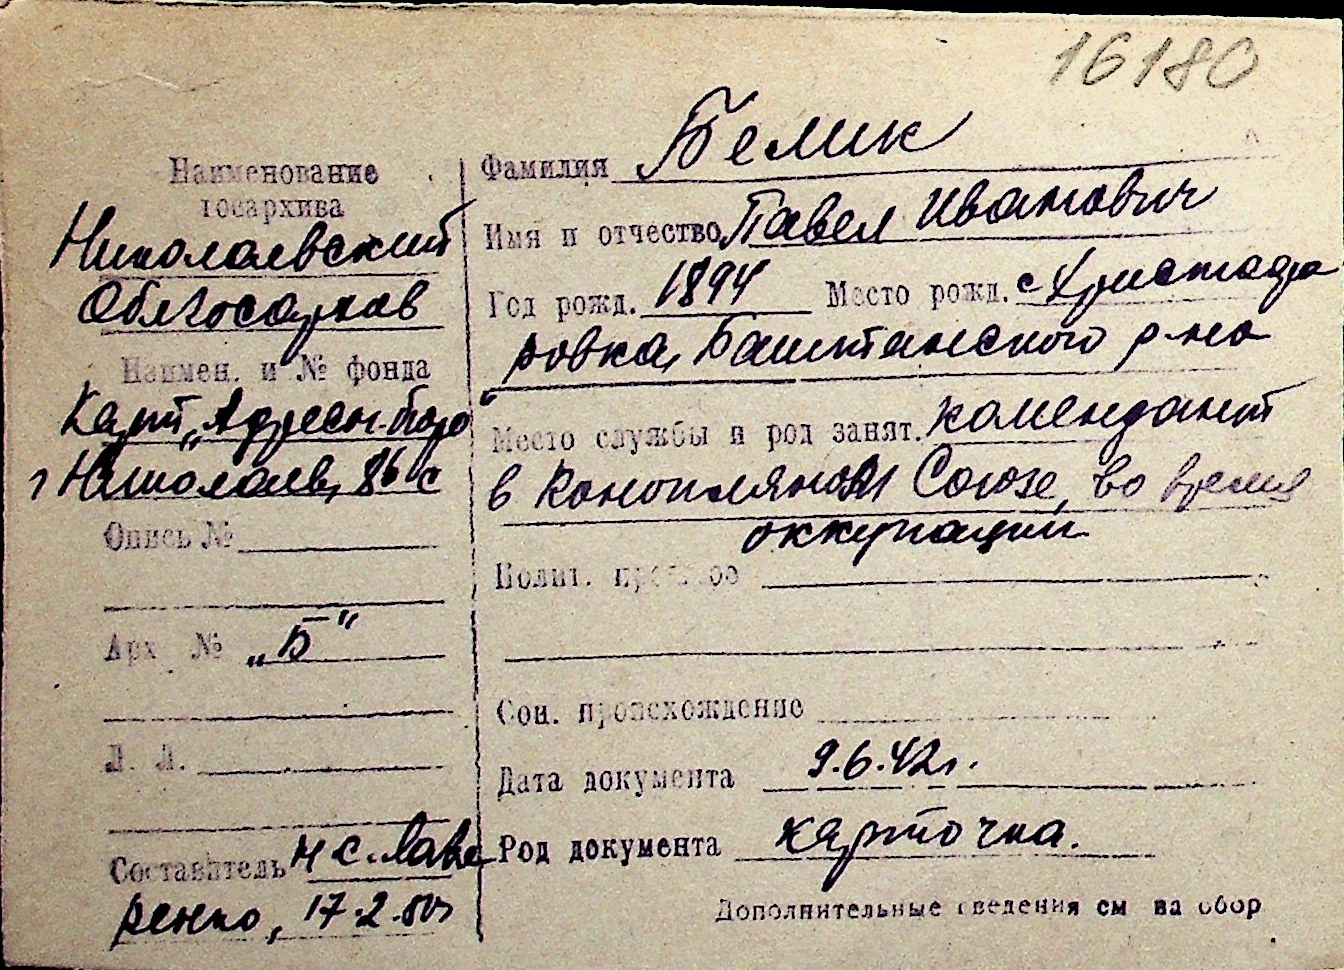 16180
Наименование
госархива
Николаевский
Облгосархив
Наимен. и № фонда
Карт. „Адресн. бюро"
г Николаев, 86 с
Опись №
Арх №  „Б"
Л. Л.
Составитель Н С. Лавре
ренко, 17.2.50г
Фамилия Белик
Имя и отчество Павел Иванович
Год рожд. 1894 Место рожд. с Христофо
ровка, Баштанского р-на
Место службы и род занят. комендант
в Конопляном Союзе, во время
оккупации
Полит.
Соц. происхождение
Дата документа 9.6.42г.
Род документа карточка.
Дополнительные сведения см на обор